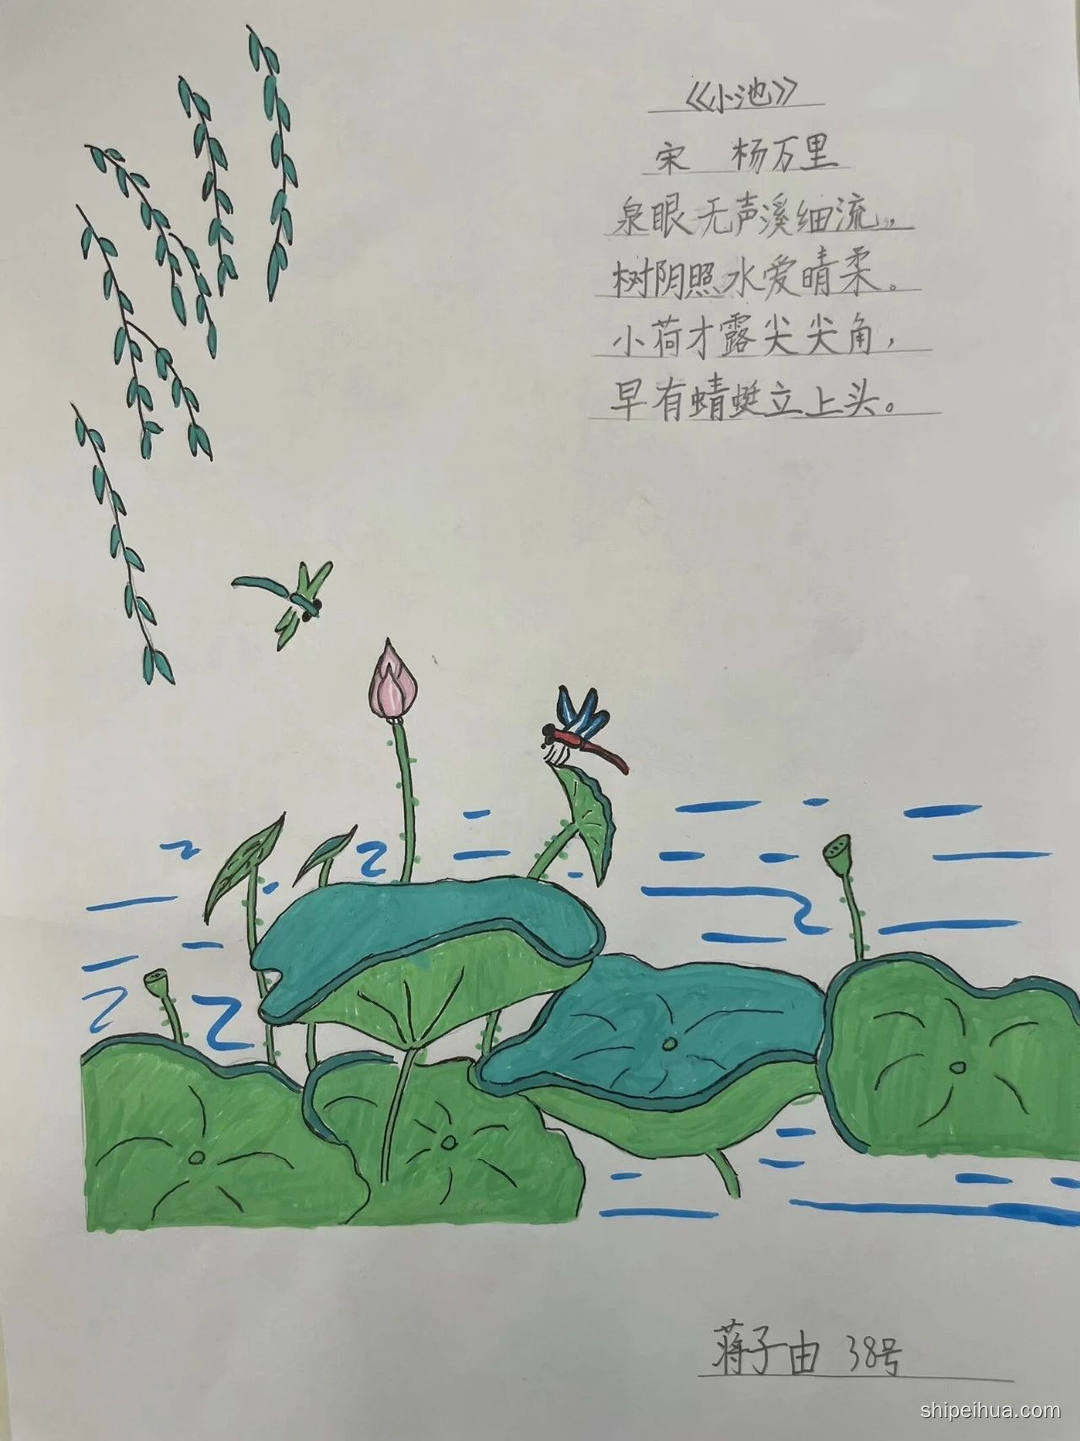 《小池》
宋 杨万里
泉眼无声溪细流，
树阴照水爱晴柔。
小荷才露尖尖角，
早有蜻蜓立上头。
蒋子由 38号
shipeihua.com